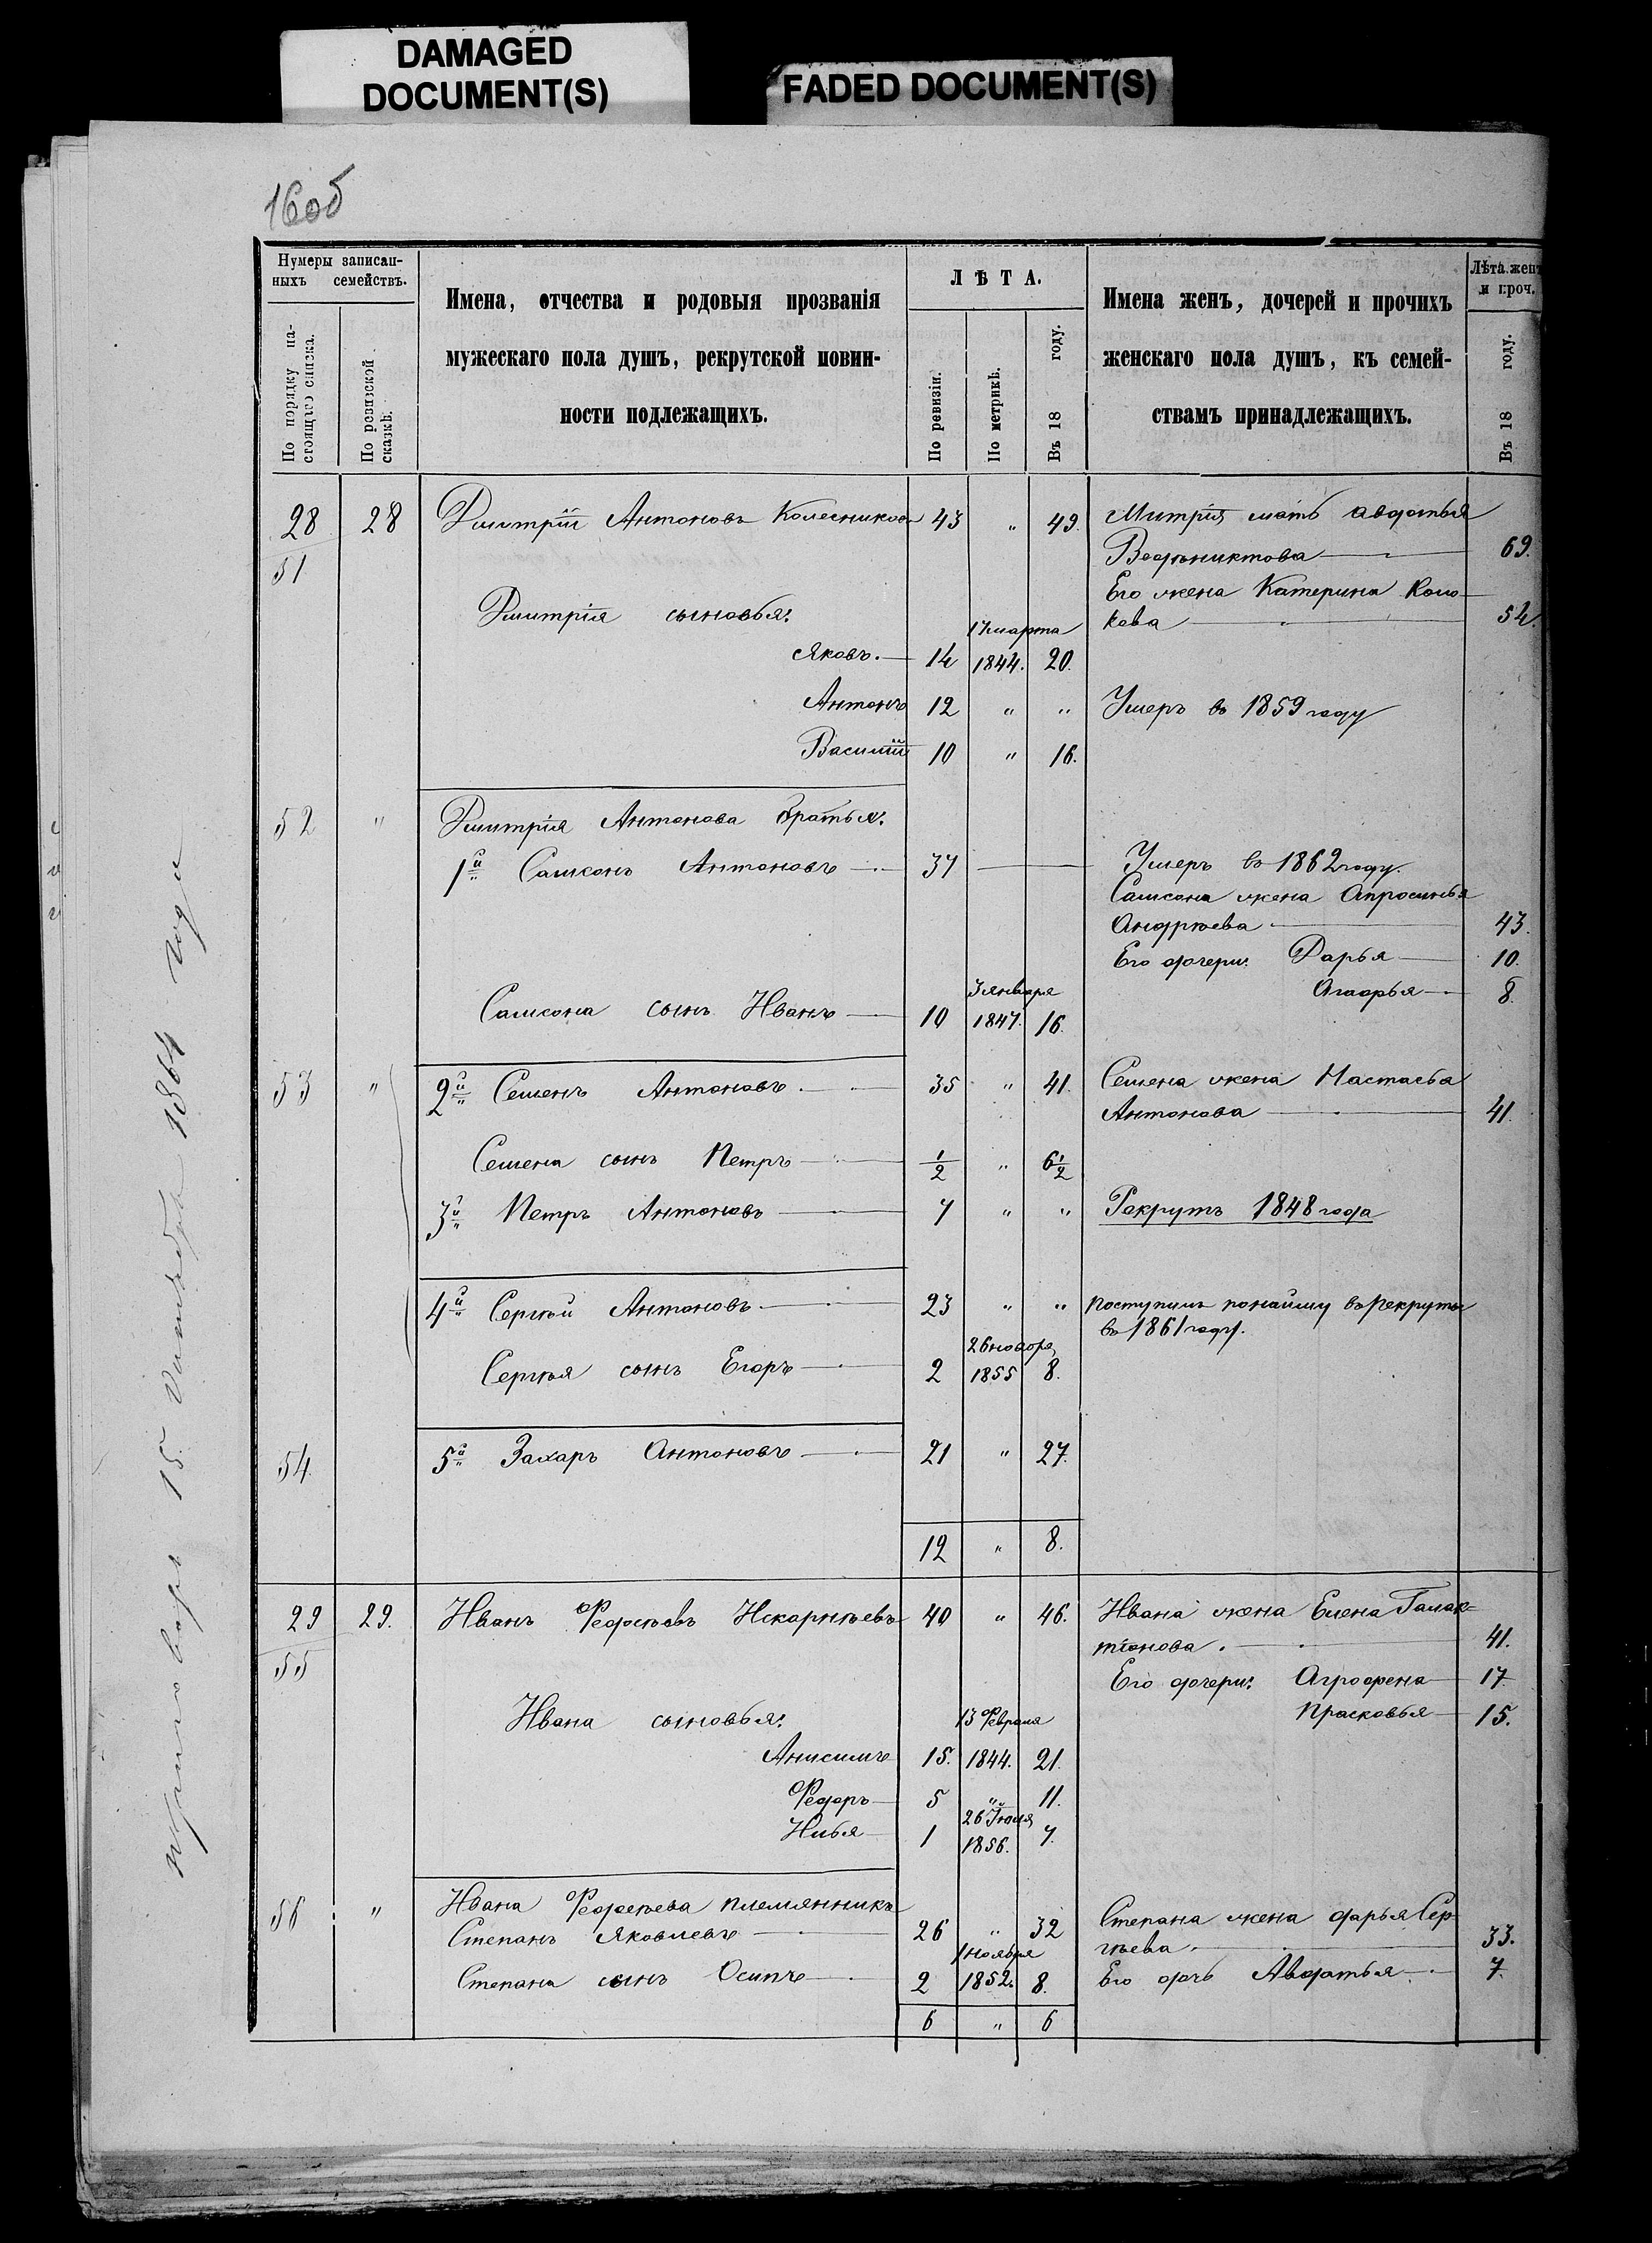 DAMAGED
DOCUMENT(S)
FADED DOCUMENT(S)
16об
Нумеры записан-
ныхъ семействъ.
По порядку на-
стоящаго списка.
По ревизской
сказкѣ.
Имена, отчества и родовыя прозванія
мужескаго пола душъ, рекрутской повин-
ности подлежащихъ.
ЛѢТА.
По ревизіи.
По метрикѣ.
Въ 18 году.
Имена женъ, дочерей и прочихъ
женскаго пола душъ, къ семей-
ствамъ принадлежащихъ.
Лѣта жен
и проч.
Въ 18 году.
28 28 Дмитрій Антоновъ Колесниковъ 43 " 49. Митрія мать авдотья
51 69.
Его жена Катерина
кова 54.
Дмитрія сыновья:
17 марта
Яковъ. 14 1844. 20.
Антонъ 12 " " Умеръ въ 1859 году
Василій 10 " 16.
52 " Дмитрія Антонова братья:
1й Самсонъ Антоновъ 37 Умеръ въ 1862 году.
Самсона жена Апросинья
Андрѣева 43.
Его дочери: Дарья 10.
Агафья 8.
3 января
Самсона сынъ Иванъ 10 1847. 16.
53 " 2й Семенъ Антоновъ 35 " 41. Семена жена Настасья
Антонова 41.
Семена сынъ Петръ 1/2 " 6 1/2
3й Петръ Антоновъ 7 " " Рекрутъ 1848 года
4й Сергѣй Антоновъ 23 " " поступилъ понайму въ рекруты
въ 1861 году.
26 ноября
Сергѣя сынъ Егоръ 2 1855 8.
54. 5й Захаръ Антоновъ 21 " 27.
12 " 8.
29 29. Иванъ Федосѣевъ Искарнѣевъ 40 " 46. Ивана жена Елена Галак-
тіонова. 41.
55
Его дочери: Аграфена 17
Прасковья 15.
Ивана сыновья:
13 Февраля
Анисимъ 15. 1844. 21.
Федоръ 5 " 11.
26 Іюля
Илья 1 1856. 7.
56 " Ивана Федосѣева племянникъ
Степанъ Яковлевъ 26 " 32 Степана жена дарья Сер-
гѣева. 33.
1 ноября
Степана сынъ Осипъ 2 1852. 8. Его дочь Авдотья 7.
6 " 6
15 1864 года